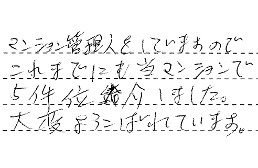 マンション管理人をしていますので
これまでにも当マンションで
5件位紹介しました。
大変よろこばれています。